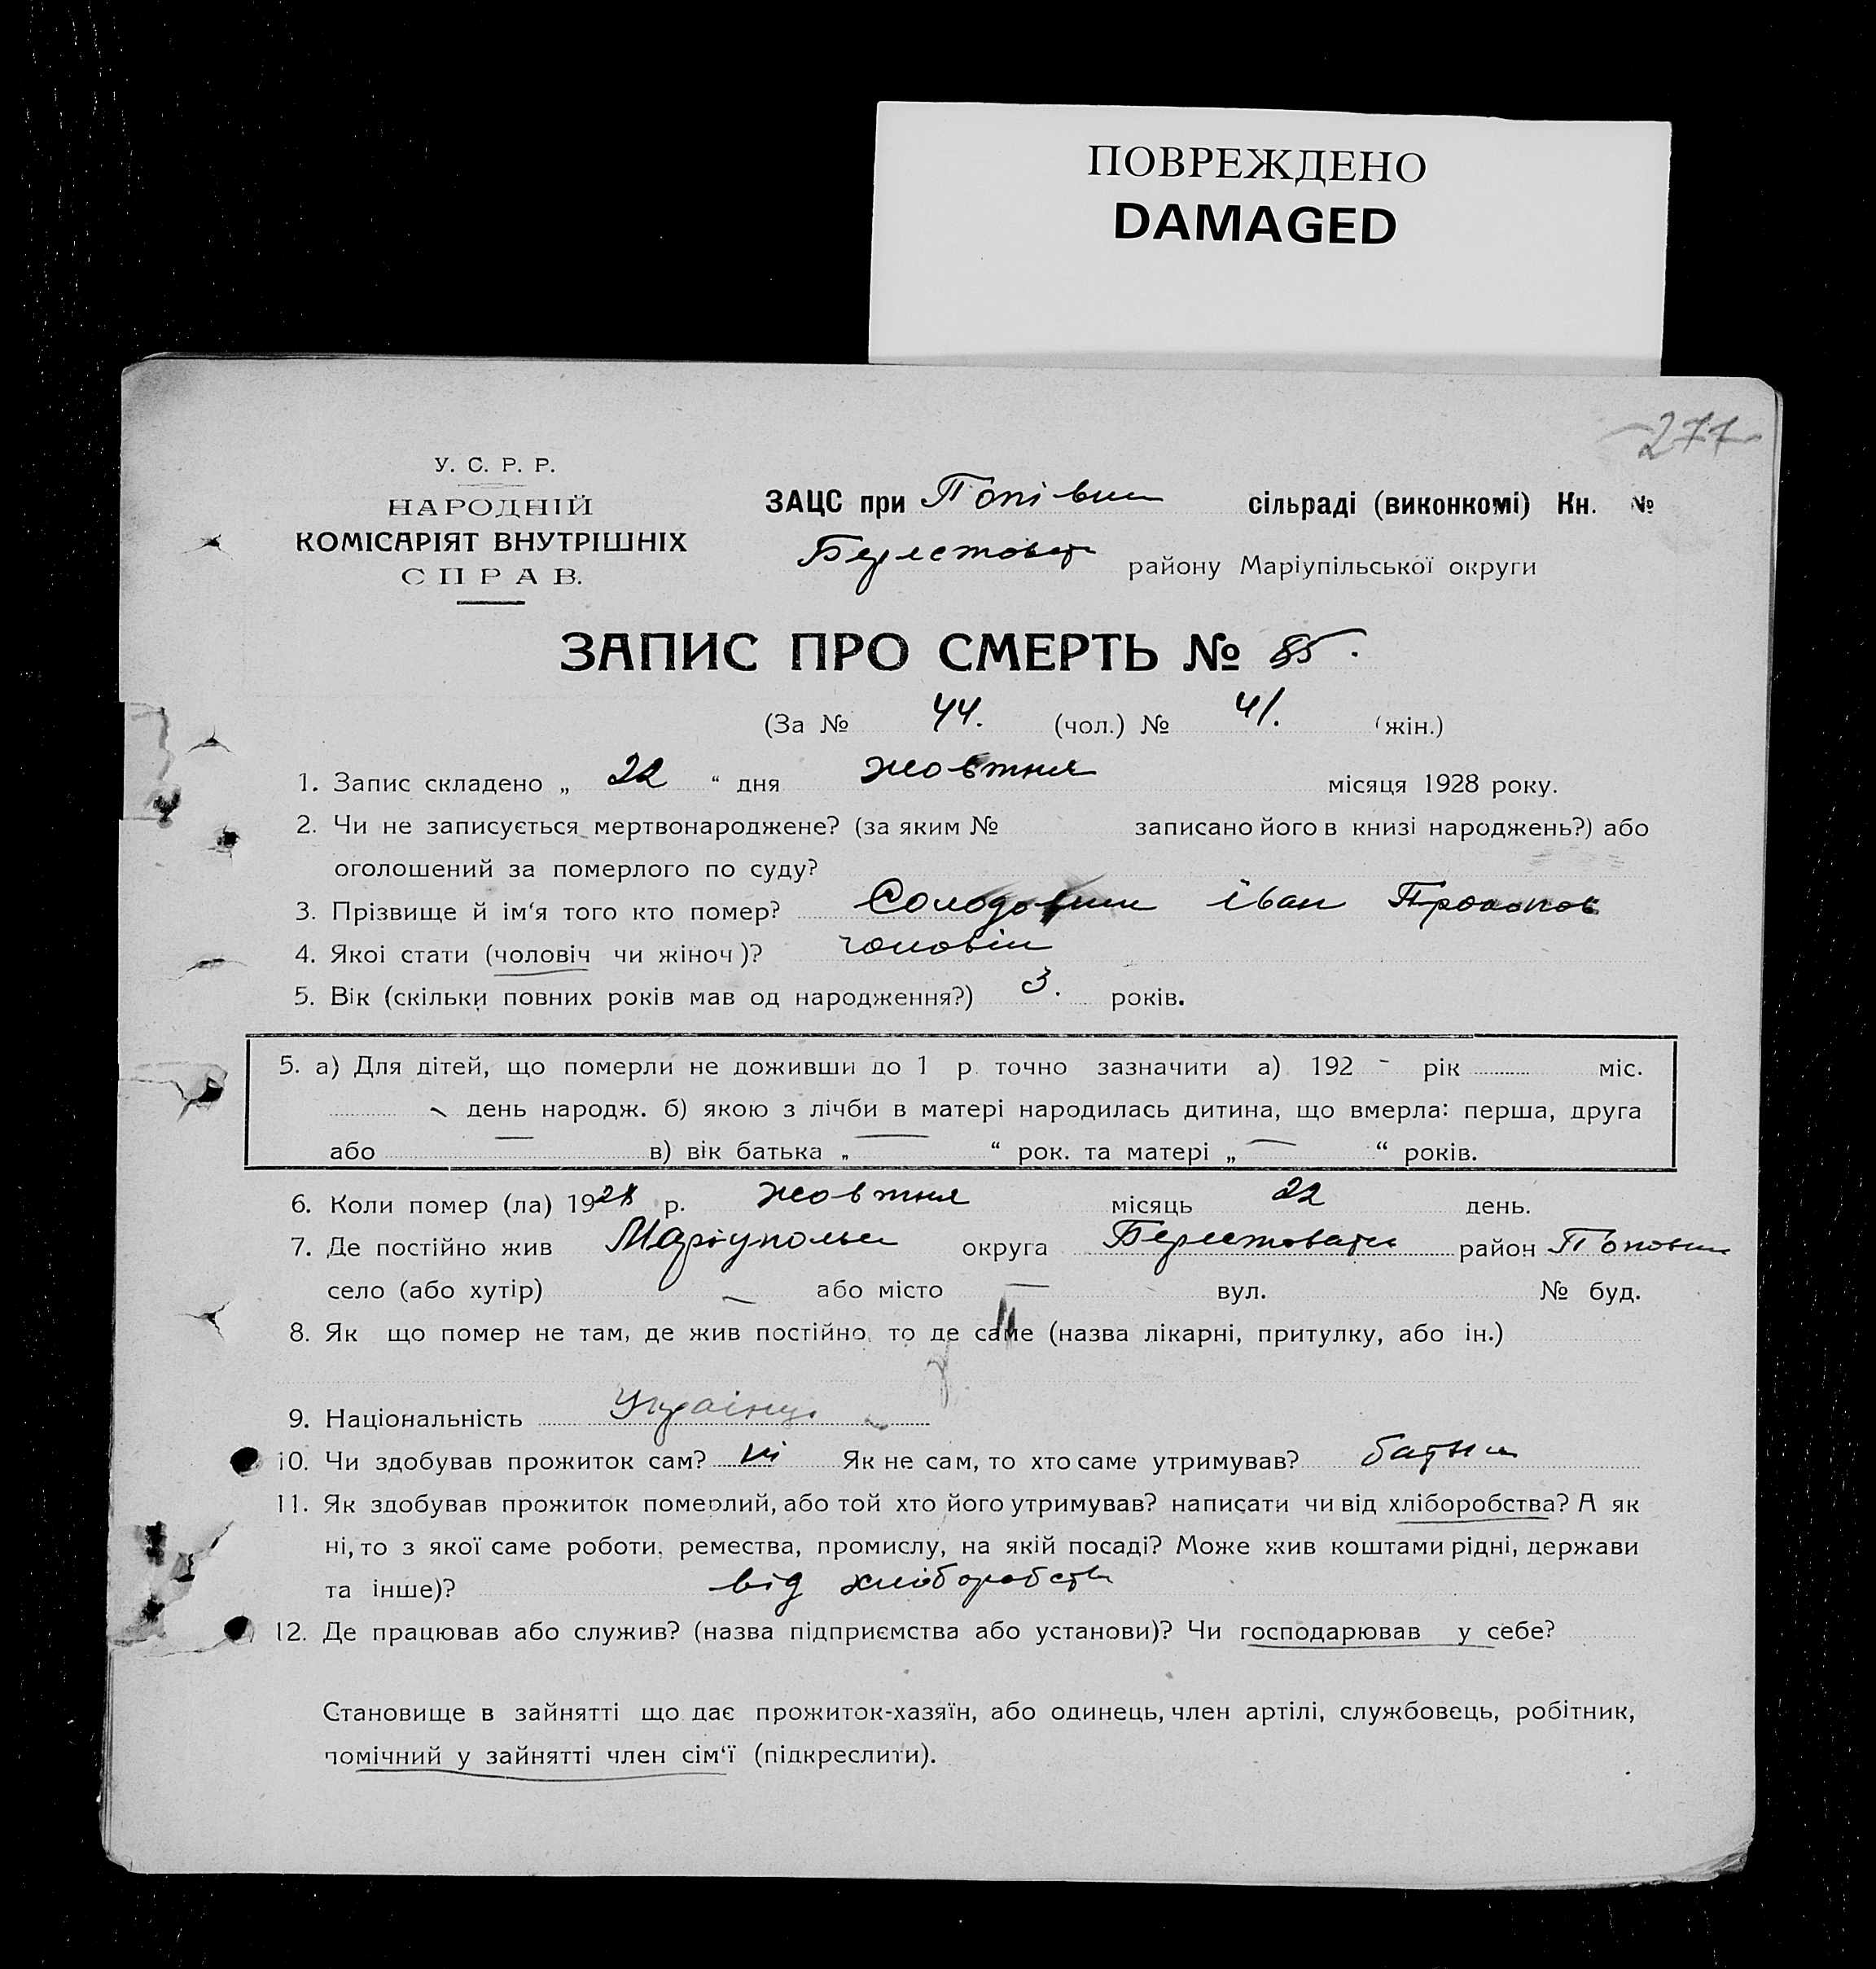 ПОВРЕЖДЕНО
DAMAGED
277
У. С. Р. Р.
НАРОДНІЙ
КОМІСАРІЯТ ВНУТРІШНІХ
СПРАВ.
ЗАЦС при Попівки сільраді (виконкомі) Кн. №
Берестоват району Маріупільської округи
ЗАПИС ПРО СМЕРТЬ № 85.
(За № 44. (чол.) № 41. (жін.)
1. Запис складено „ 22 “ дня жовтня місяця 1928 року.
2. Чи не записується мертвонароджене? (за яким № записано його в книзі народжень?) або
оголошений за померлого по суду?
3. Прізвище й ім‘я того кто помер? Іван Прокопов
4. Якоі стати (чоловіч чи жіноч)? чоловіч
5. Вік (скільки повних років мав од народження?) 3. років.
5. а) Для дітей, що померли не доживши до 1 р. точно зазначити а) 192 - рік міс.
день народж. б) якою з лічби в матері народилась дитина, що вмерла: перша, друга
або — в) вік батька „ — “ рок. та матері „ — “ років.
6. Коли помер (ла) 1928 р. жовтня місяць 22 день.
7. Де постійно жив Маріупольск округа Берестоват район Поповки
село (або хутір) — або місто — вул. № буд.
8. Як що помер не там, де жив постійно, то де саме (назва лікарні, притулку, або ін.)
9. Національність Українц.
10. Чи здобував прожиток сам? ні Як не сам, то хто саме утримував? батьки
11. Як здобував прожиток померлий, або той хто його утримував? написати чи від хліборобства? А як
ні, то з якої саме роботи, ремества, промислу, на якій посаді? Може жив коштами рідні, держави
та інше)? від хліборобств
12. Де працював або служив? (назва підприємства або установи)? Чи господарював у себе?
Становище в зайнятті що дає прожиток-хазяїн, або одинець, член артілі, службовець, робітник,
помічний у зайнятті член сім‘ї (підкреслити).